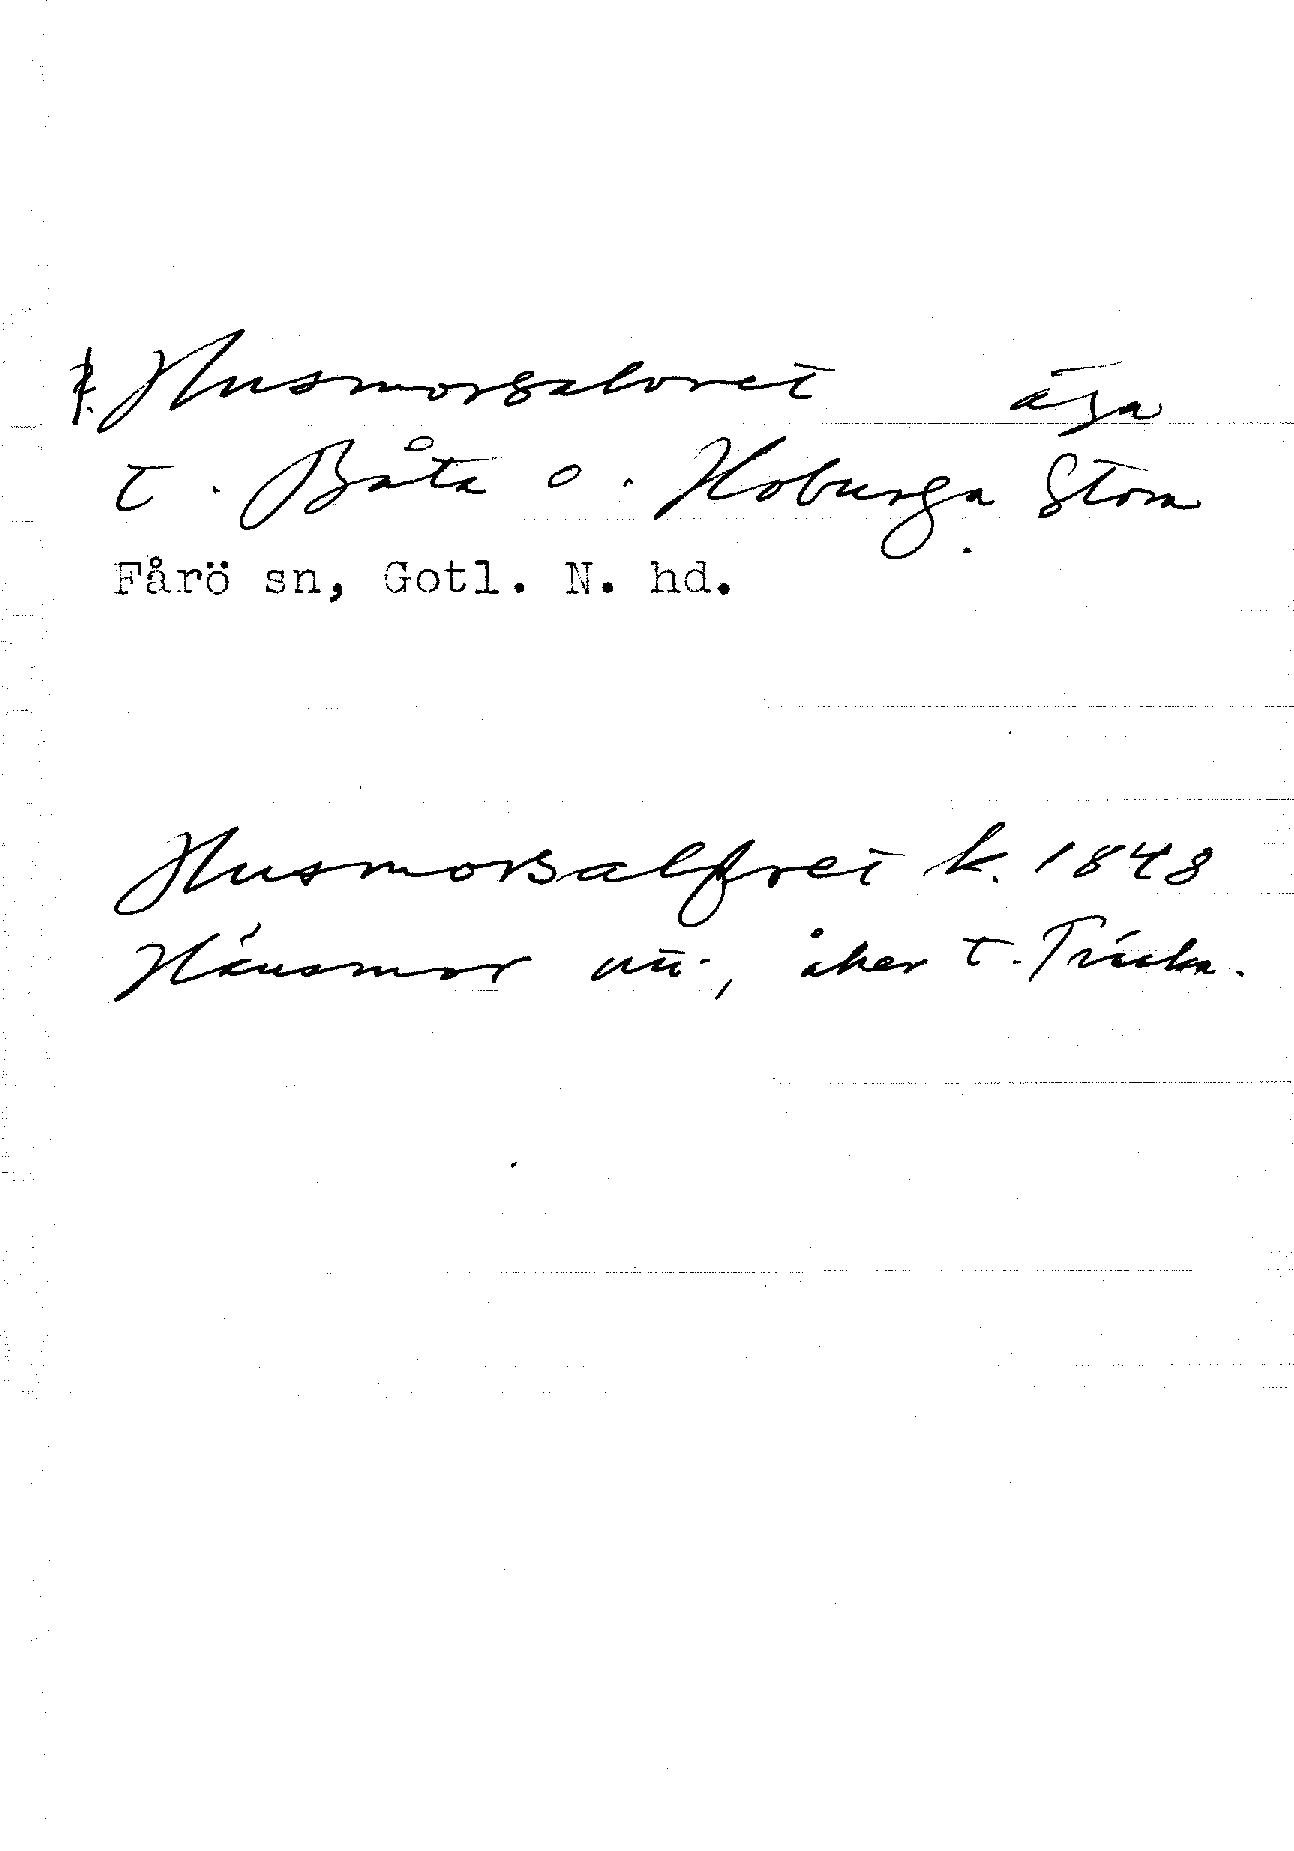 Husmorsaloret äga
t. Båta o. Hoburga Stora
Fårö sn, Gotl. N. hd.
Husmorsalfret k. 1848
Häusmor nu., åker t.